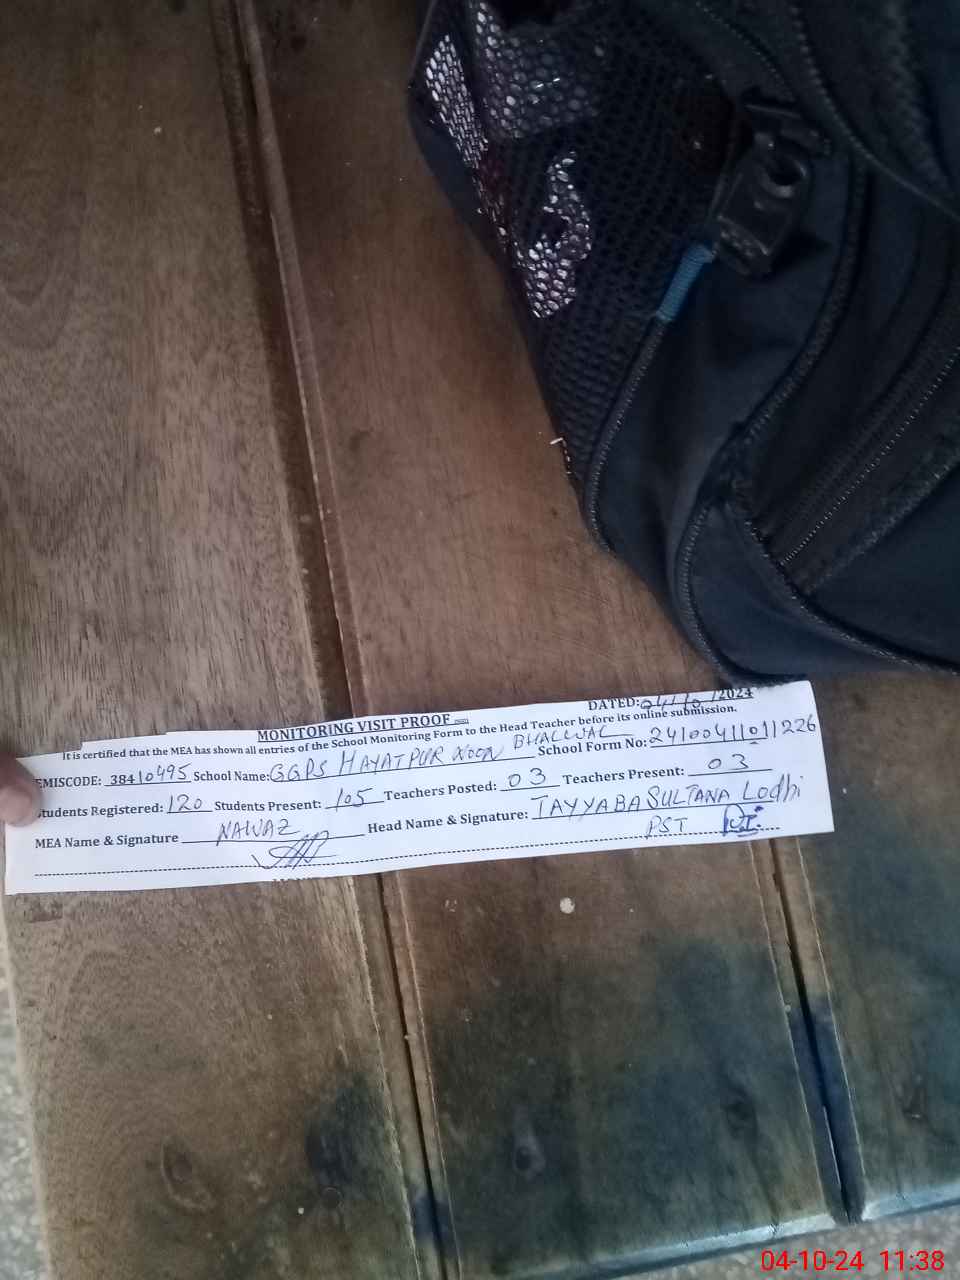 DATED: 04/10/2024
MONITORING VISIT PROOF
It is certified that the MEA has shown all entries of the School Monitoring Form to the Head Teacher before its online submission.
EMISCODE: 38410495 School Name: GGPS HAYATPUR NOON BHALWAL School Form No: 2410041101 1226
Students Registered: 120 Students Present: 105 Teachers Posted: 03 Teachers Present: 03
MEA Name & Signature NAWAZ Head Name & Signature: TAYYABA SULTANA Lodhi
PST
04-10-24 11:38